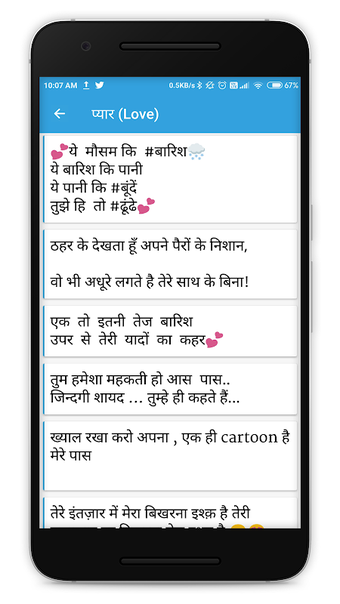 10:07 AM 0.5KB/s 67%
प्यार (Love)
💕ये मौसम कि #बारिश🌧
ये बारिश कि पानी
ये पानी कि #बूंदें
तुझे हि तो #ढूंढे💕
ठहर के देखता हूँ अपने पैरों के निशान,
वो भी अधूरे लगते है तेरे साथ के बिना!
एक तो इतनी तेज बारिश
उपर से तेरी यादों का कहर💕
तुम हमेशा महकती हो आस पास..
जिन्दगी शायद ... तुम्हे ही कहते हैं...
ख्याल रखा करो अपना , एक ही cartoon है
मेरे पास
तेरे इंतज़ार में मेरा बिखरना इश्क़ है तेरी